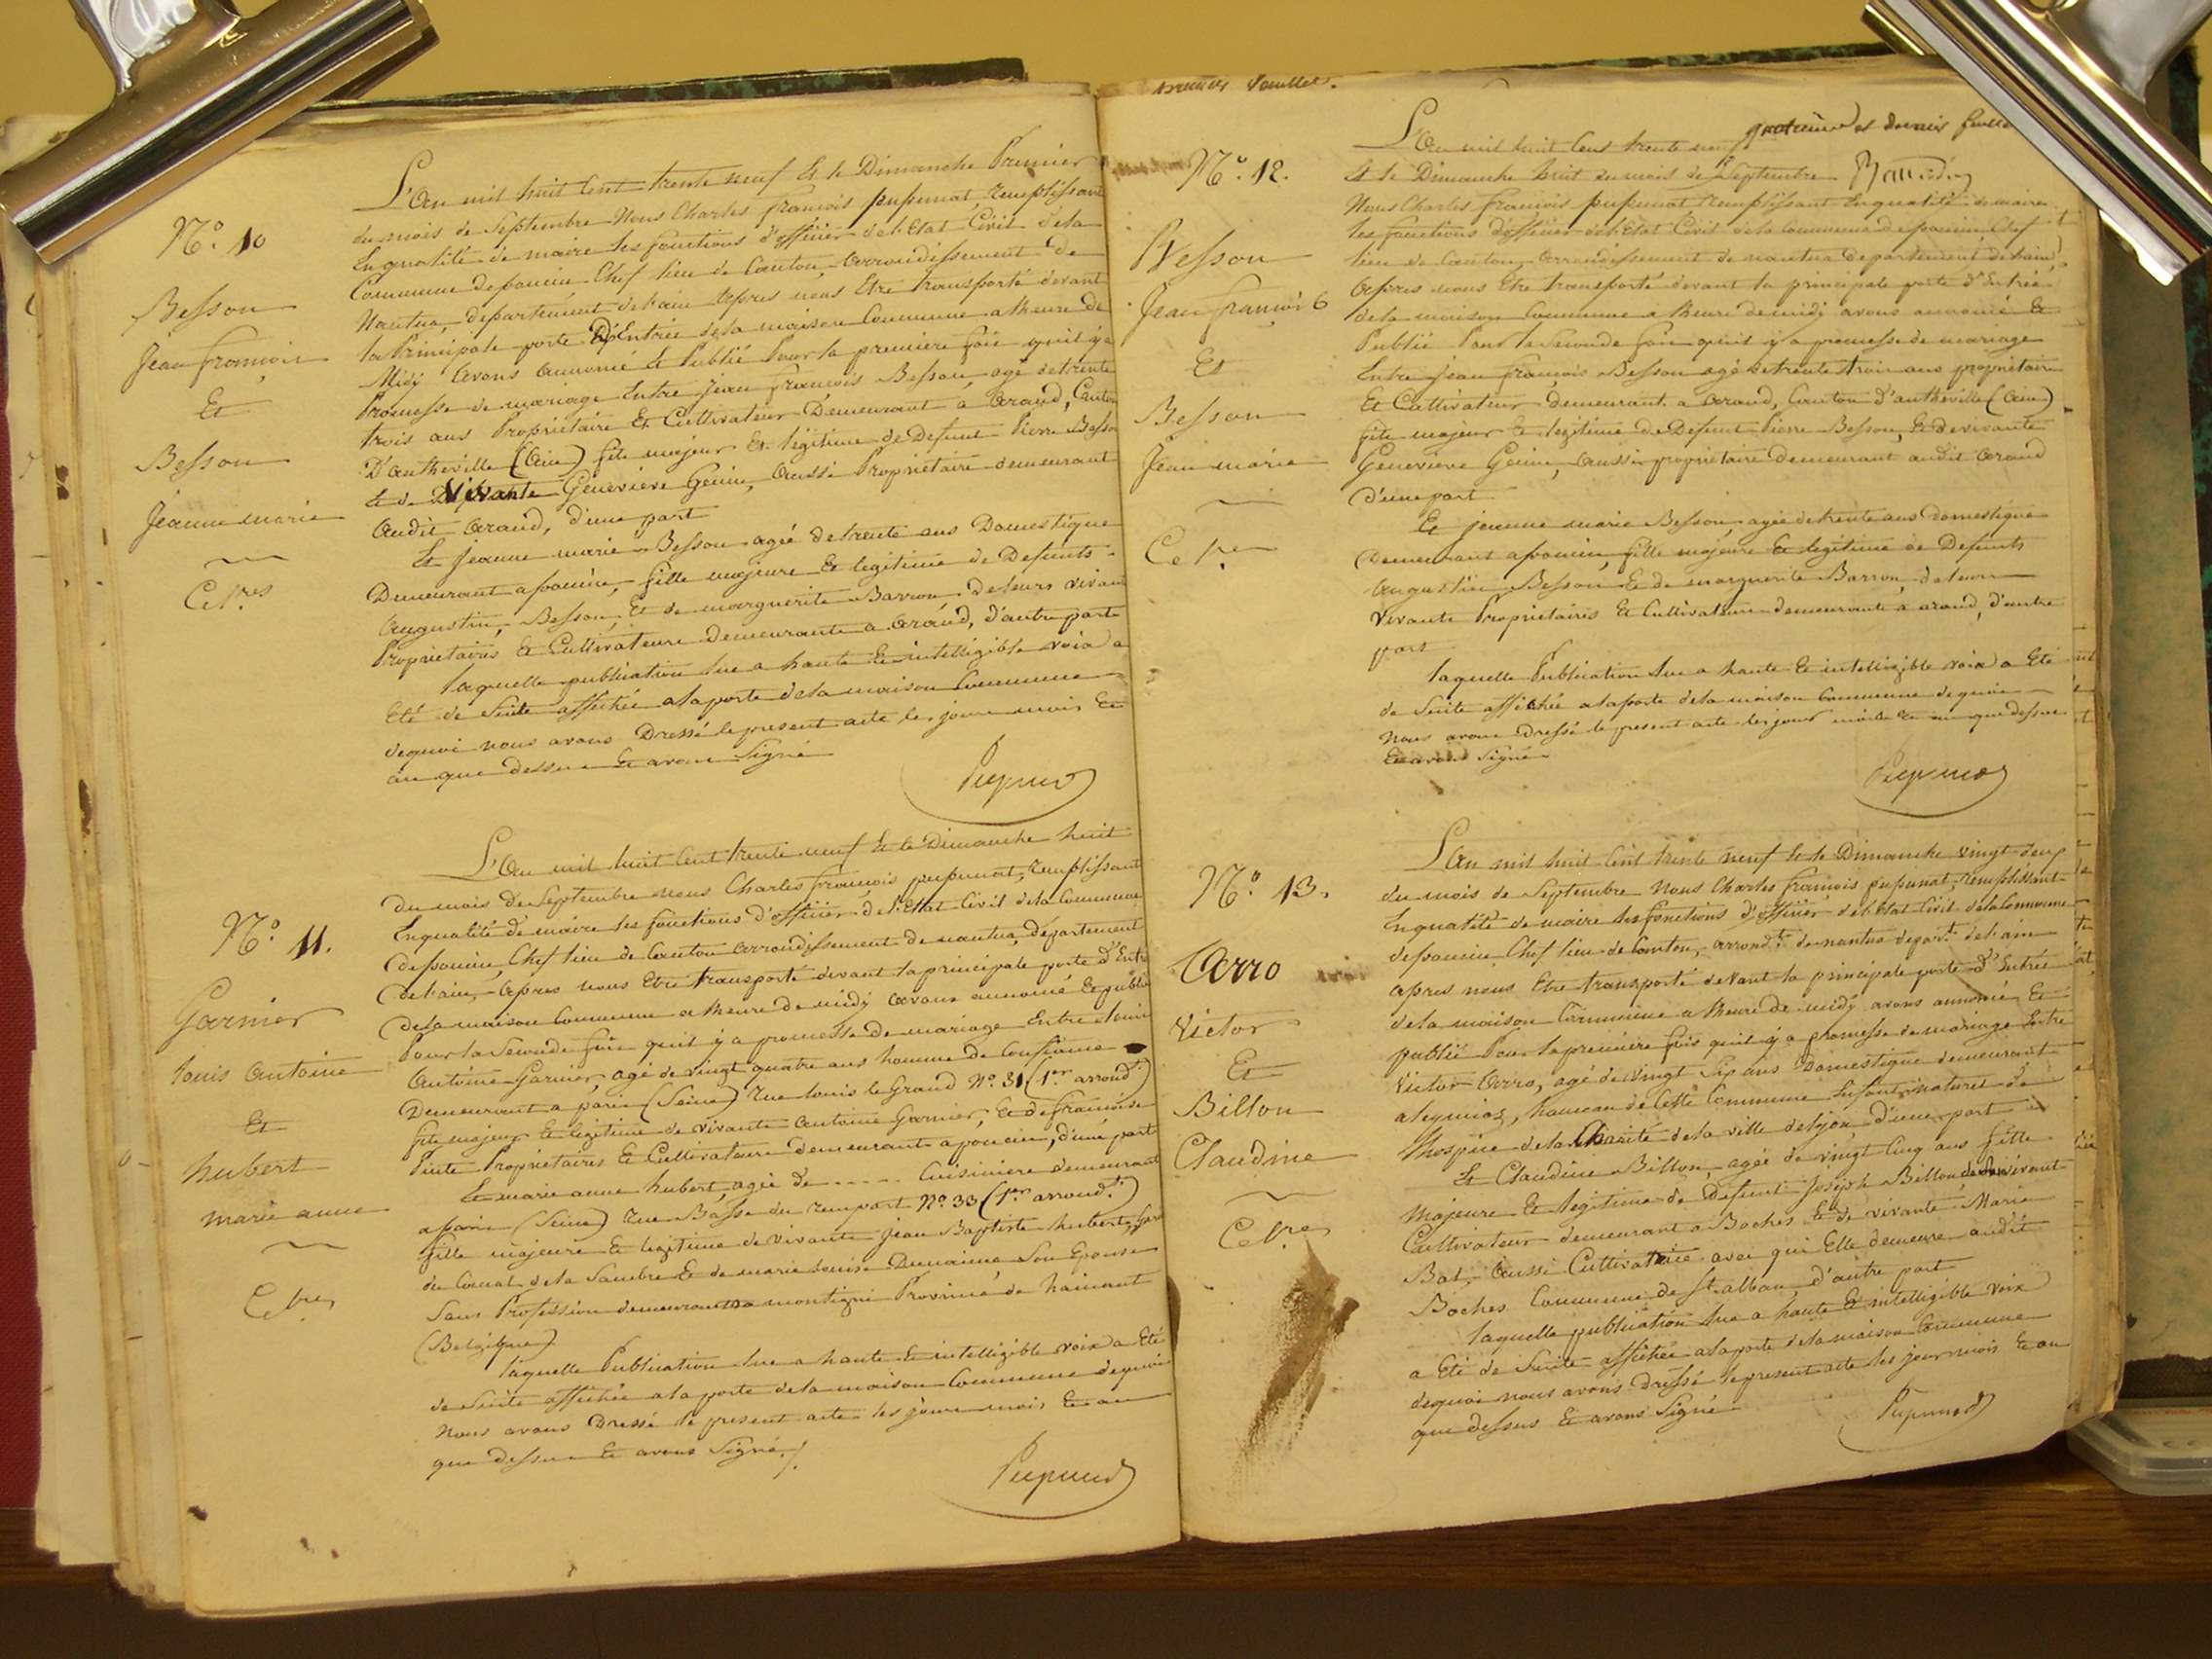 N.o 10
Besson
Jean françois
Et
Besson
Jeanne marie
Cel.res
L'an mil huit Cent trente neuf Et le Dimanche Premier
du mois de Septembre Nous Charles françois pupunat, remplissant
En qualité de maire les fonctions d'officier de l'Etat Civil dela
Commune deponcin Chef lieu de Canton, arrondissement de
Nantua, département delain Apres nous Etre transporté devant
la Principale porte D'Entrée dela maison Commune a lheure de
Midy Avons Annoncé Et Publié Pour la premiere fois quil ya
Promesse de mariage Entre Jean françois Besson, agé detrente
trois ans Propriétaire Et Cultivateur Demeurant à arand, Canton
D'antheville (Ain) fils majeur Et légitime de Defunt Pierre Besson
Et de Vivante Génevieve Génin, Aussi Propriétaire demeurant
Audit Arand, d'une part
Et Jeanne marie Besson agée detrente ans Domestique
Demeurant aponcin, fille majeure Et legitime de Defunts
Augustin, Besson, Et de marguerite Barron, deleurs vivant
Propriétaires Et Cultivateurs Demeurants a Arand, d'autre part
laquelle publication lue a haute Et intelligible voix a
Eté de Suite affichée alaporte dela maison Commune
dequoi nous avons Dressé le present acte les jours mois Et
an que dessus Et avons Signé
Pupunat
N.o 11.
Garnier
louis antoine
Et
hubert
marie anne
Cel.res
L'an mil huit Cent trente neuf Et le Dimanche huit
du mois de Septembre nous Charles françois pupunat, remplissant
En qualité de maire les fonctions d'officier de l'Etat Civil dela Commune
deponcin, Chef lieu de Canton arrondissement de nantua, département
delain, Apres nous Etre transporté devant la principale porte d'Entrée
dela maison Commune a lheure de midy avons annoncé Et publié
Pour la Seconde fois quil y a promesse de mariage Entre louis
Antoine Garnier, agé de vingt quatre ans homme de Confiance
Demeurant a paris (Seine) rue louis le Grand N.o 31 (1.er arrond.t)
fils majeur Et légitime de vivants Antoine Garnier, Et de françoise
Propriétaires Et Cultivateurs demeurants a poncin, d'une part
Et marie anne hubert, agée de ..... Cuisiniere demeurant
aparis (Seine) rue Basse du rempart N.o 33 (1.er arrond.t)
fille majeure Et legitime de vivants Jean Baptiste hubert,
du Canal dela Sambre Et de marie louise Son Epouse
Sans Profession demeurants a montigni Province de hainaut
(Belgique)
laquelle Publication lue a haute Et intelligible voix a Eté
de Suite affichée alaporte dela maison Commune dequoi
Nous avons Dressé le present acte les jours mois Et an
que dessus Et avons Signé ./.
Pupunat
premier feuillet.
quatrieme et dernier feuillet
N.o 12.
Besson
Jean françois
Et
Besson
Jean marie
Cel.res
L'an mil huit Cent trente neuf
Et le Dimanche huit du mois de Septembre
Nous Charles françois pupunat remplissant En qualité de maire
les fonctions d'officier de l'Etat Civil dela Commune deponcin Chef
lieu de Canton, arrondissement de nantua département delain,
Apres nous Etre transporté devant la principale porte d'Entrée
dela maison Commune a lheure de midi avons annoncé Et
Publié Pour la Seconde fois quil y a promesse de mariage
Entre Jean françois Besson agé detrente trois ans propriétaire
Et Cultivateur demeurant a Arand, Canton d'antheville (Ain)
fils majeur & legitime de Defunt Pierre Besson, Et de vivante
Genevieve Génin, Aussi propriétaire demeurant audit Arand
d'une part
Et jeanne marie Besson, agée detrente ans domestique
Demeurant aponcin, fille majeure Et legitime de Defunts
Augustin Besson, Et de marguerite Barron, deleurs
vivants Propriétaires Et Cultivateurs demeurants à arand, d'autre
part
laquelle Publication lue a haute Et intelligible voix a Eté
de Suite affichée alaporte dela maison Commune dequoi
Nous avons dressé le present acte les jour mois Et an que dessus
Et avons Signé
Pupunat
N.o 13.
Arro
Victor
Et
Billon
Claudine
Cel.res
L'an mil huit Cent trente neuf Et le Dimanche vingt deux
du mois de Septembre Nous Charles françois pupunat, remplissant
En qualité de maire les fonctions d'officier de l'Etat Civil dela Commune
deponcin Chef lieu de Canton, arrond.t de nantua depart.t delain
apres nous Etre transporté devant la principale porte d'Entrée
dela maison Commune a lheure de midy avons annoncé Et
publié Pour la premiere fois quil y a promesse de mariage Entre
Victor Arro, agé de vingt Six ans Domestique demeurant
a leymiaz, hameau de Cette Commune Enfant naturel de
lhospice dela Charité dela ville delyon, d'une part
Et Claudine Billon, agée de vingt Cinq ans fille
Majeure Et legitime de Defunt Joseph Billon de son vivant
Cultivateur demeurant à Boches Et de vivante Marie
Bal, Aussi Cultivatrice avec qui Elle demeure audit
Boches Commune de St. alban, d'autre part
laquelle publication lue a haute Et intelligible voix
a Eté de Suite affichée alaporte dela maison Commune
dequoi nous avons dressé le present acte les jour mois Et an
que dessus Et avons Signé
Pupunat